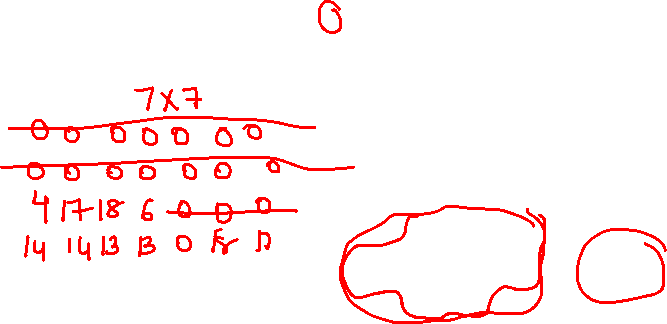 0
7x7
0 0 0 0 0 0 0
0 0 0 0 0 0 0
4 17 18 6 0 0 0
14 14 13 13 0